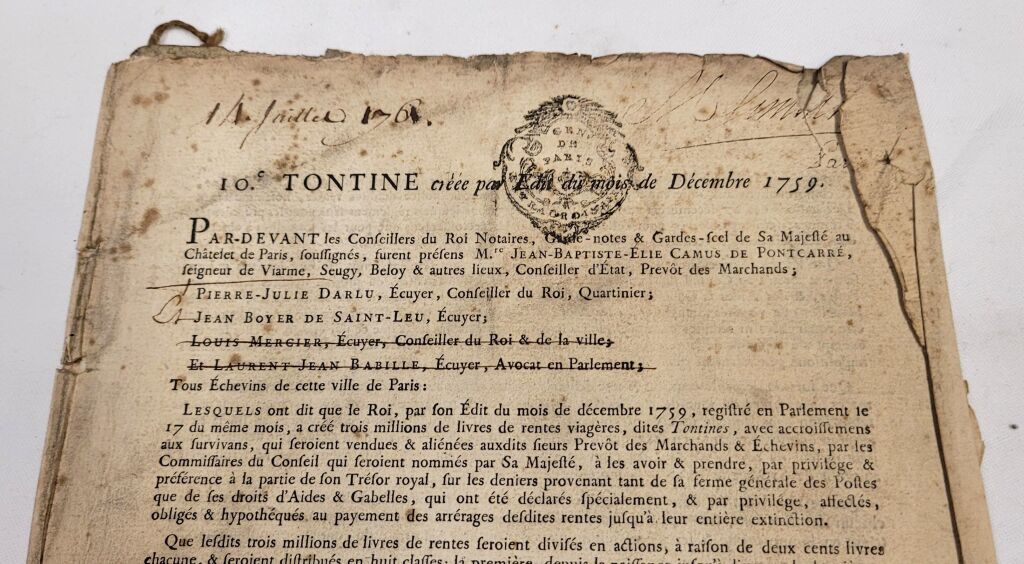 14 Juillet 176
GEN. DE PARIS
10.e TONTINE créée par Édit du mois de Décembre 1759.
PAR-DEVANT les Conſeillers du Roi Notaires, Garde-notes & Gardes-ſcel de Sa Majeſté au
Châtelet de Paris, ſouſſignés, furent préſens M.re JEAN-BAPTISTE-ÉLIE CAMUS DE PONTCARRÉ,
ſeigneur de Viarme, Seugy, Beloy & autres lieux, Conſeiller d'État, Prevôt des Marchands;
PIERRE-JULIE DARLU, Écuyer, Conſeiller du Roi, Quartinier;
Et JEAN BOYER DE SAINT-LEU, Écuyer;
LOUIS MERCIER, Écuyer, Conſeiller du Roi & de la ville;
Et LAURENT JEAN BABILLE, Écuyer, Avocat en Parlement;
Tous Échevins de cette ville de Paris:
LESQUELS ont dit que le Roi, par ſon Édit du mois de décembre 1759, regiſtré en Parlement le
17 du même mois, a créé trois millions de livres de rentes viagères, dites Tontines, avec accroiſſemens
aux ſurvivans, qui ſeroient vendues & aliénées auxdits ſieurs Prevôt des Marchands & Échevins, par les
Commiſſaires du Conſeil qui ſeroient nommés par Sa Majeſté, à les avoir & prendre, par privilége &
préférence à la partie de ſon Tréſor royal, ſur les deniers provenant tant de ſa ferme générale des Poſtes
que de ſes droits d'Aides & Gabelles, qui ont été déclarés ſpécialement, & par privilége, affectés,
obligés & hypothéqués au payement des arrérages deſdites rentes juſqu'à leur entière extinction.
Que leſdits trois millions de livres de rentes ſeroient diviſés en actions, à raiſon de deux cents livres
chacune, & ſeroient diſtribués en huit claſſes; la première, depuis la naiſſance juſqu'à